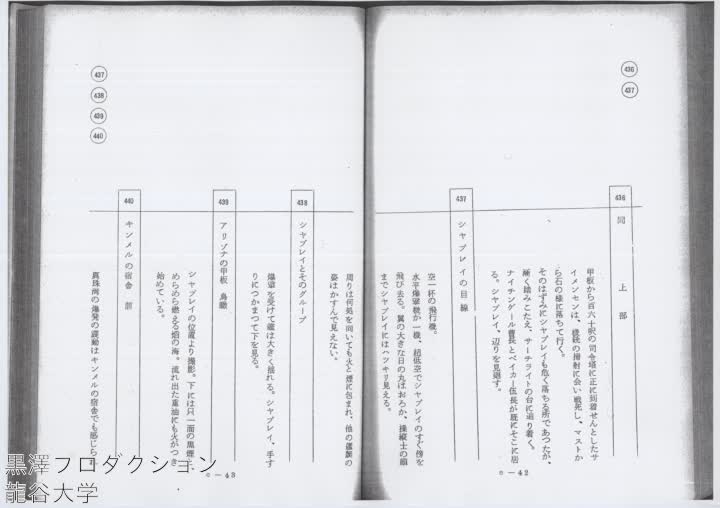 436
437
436
同 上部
甲板から百六十呎の司令塔に正に到着せんとしたサ
イメンセンは、機銃の掃射に会い戦死し、マストか
ら石の様に落ちて行く。
そのはずみにシャプレイも危く落ちる所であつたが、
漸く踏みこたえ、サーチライトの台に辿り着く。
ナイチンゲール曹長とベイカー伍長が既にそこに居
る。シャプレイ、辺りを見廻す。
437
シャプレイの目線
空一杯の飛行機。
水平爆撃機が一機、超低空でシャプレイのすぐ傍を
飛び去る。翼の大きな日の丸はおろか、操縦士の顔
までシャプレイにはハツキリ見える。
C－42
437
438
439
440
438
シャプレイとそのグループ
周りは何処を向いても火と煙に包まれ、他の艦艇の
姿はかすんで見えない。
爆撃を受けて艦は大きく揺れる。シャプレイ、手す
りにつかまつて下を見る。
439
アリゾナの甲板 鳥瞰
シャプレイの位置より撮影。下には只一面の黒煙と
めらめら燃える焰の海。流れ出た重油にも火がつき
始めている。
440
キンメルの宿舎 前
真珠湾の爆発の震動はキンメルの宿舎でも感じられ
C－43
黒澤プロダクション
龍谷大学